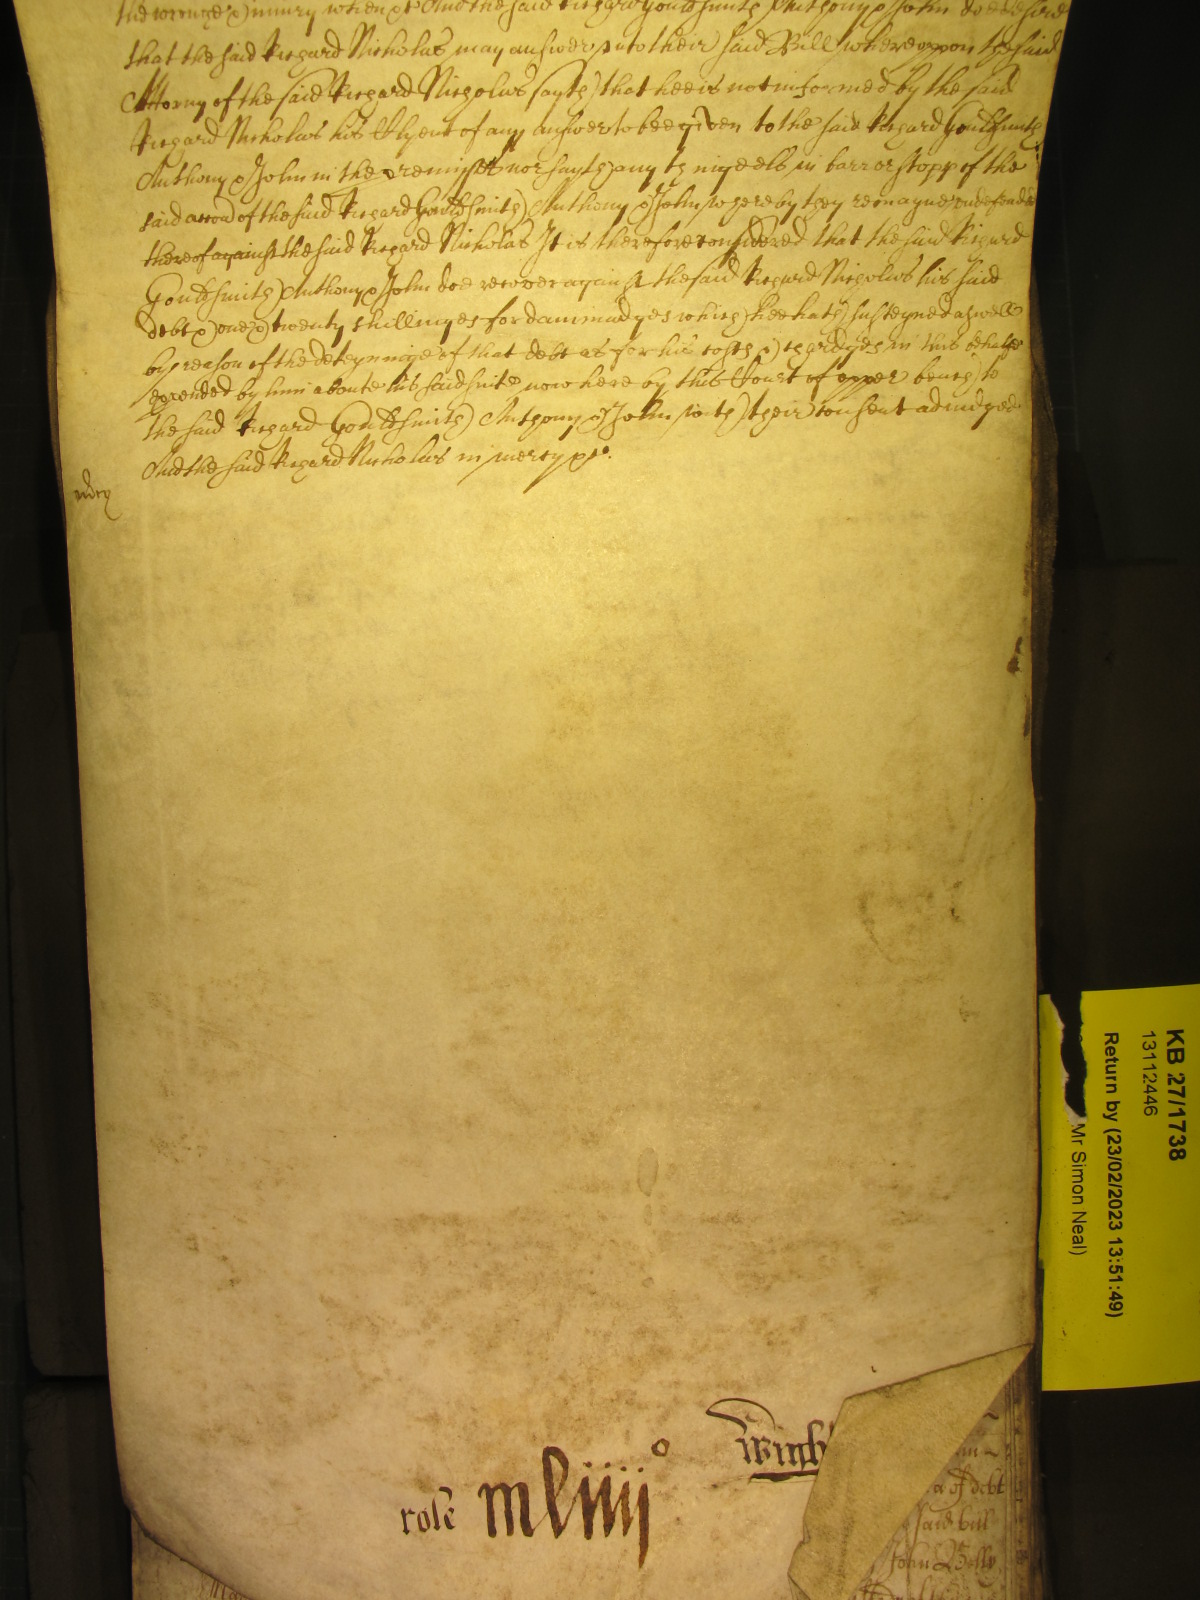 that the said Richard Nicholas may answer unto their said Bill whereuppon the said
Attorny of the said Richard Nicholas sayth that hee is not informed by the said
Richard Nicholas his Clyent of any answer to bee given to the said Richard Gouldsmith
Anthony & John in the premisses nor sayth any thinge els in barr or stopp of the
said accon of the said Richard Gouldsmith Anthony & John whereby they remayne undefended
thereof against the said Richard Nicholas It is therefore considered that the said Richard
Gouldsmith Anthony & John doe recover against the said Richard Nicholas his said
debt & one & twenty shillinges for dammadges which hee hath susteyned aswell
by reason of the deteyninge of that debt as for his costs & chardges in this behalfe
expended by him aboute his said suite now here by this Court of upper bench to
the said Richard Gouldsmith Anthony & John with their consent adiudged
And the said Richard Nicholas in mercy &c.
mercy
Wigh
role mliiij o
a of debt
said bill
John
KB 27/1738
13112446
Return by (23/02/2023 13:51:49)
Mr Simon Neal)